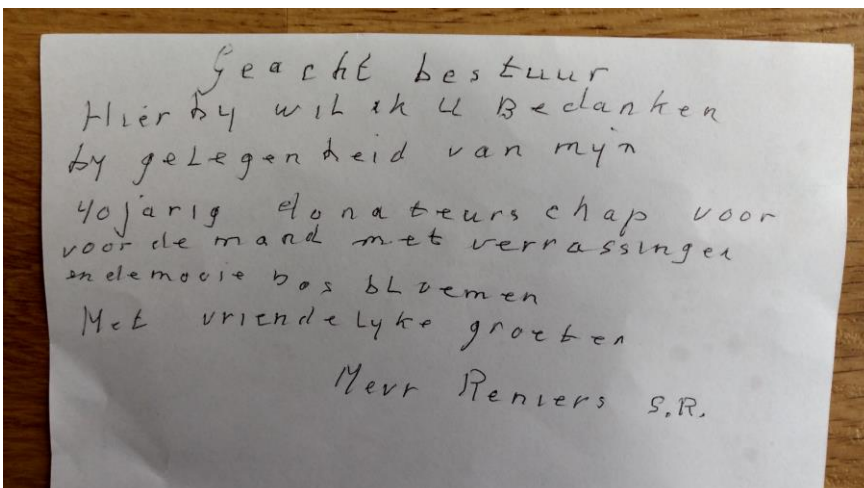 Geacht bestuur
Hierby wil ik U Bedanken
by gelegenheid van myn
40 jarig donateurschap voor
voor de mand met verrassingen
en de mooie bos bloemen
Met vriendelyke groeten
Mevr Reniers S.R.